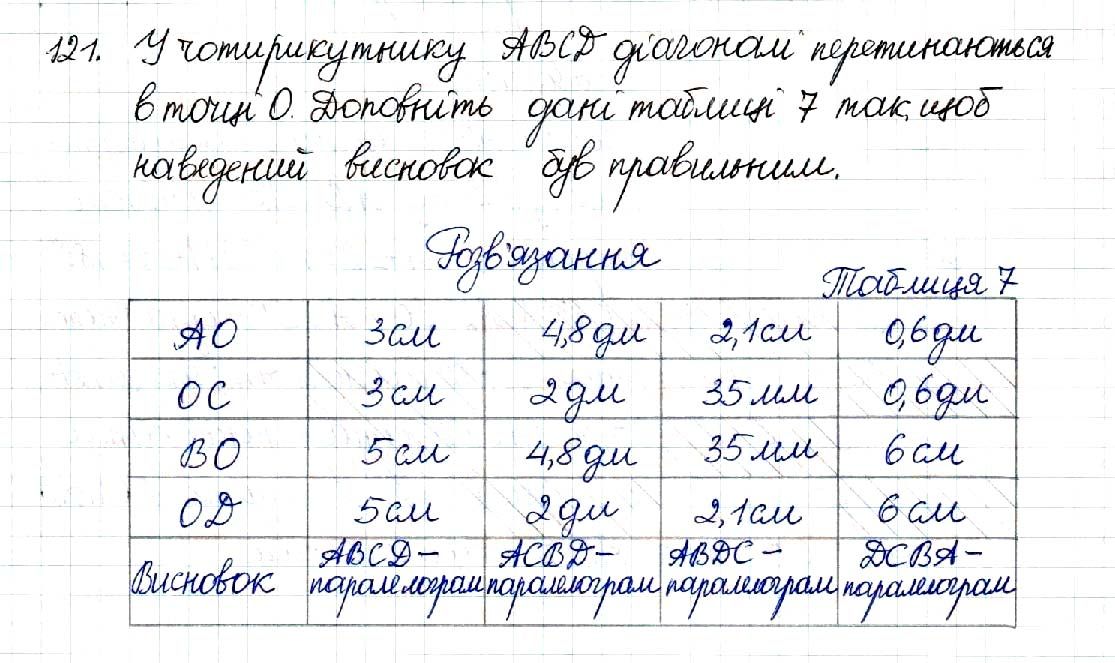 121. У чотирикутнику ABCD діагоналі перетинаються
в точці О. Доповніть дані таблиці 7 так, щоб
наведений висновок був правильним.
Розв'язання
Таблиця 7
АО 3 см 4,8 дм 2,1 см 0,6 дм
ОС 3 см 2 дм 35 мм 0,6 дм
ВО 5 см 4,8 дм 35 мм 6 см
ОД 5 см 2 дм 2,1 см 6 см
Висновок ABCD – паралелограм ACBD – паралелограм ABDC – паралелограм DCBA – паралелограм